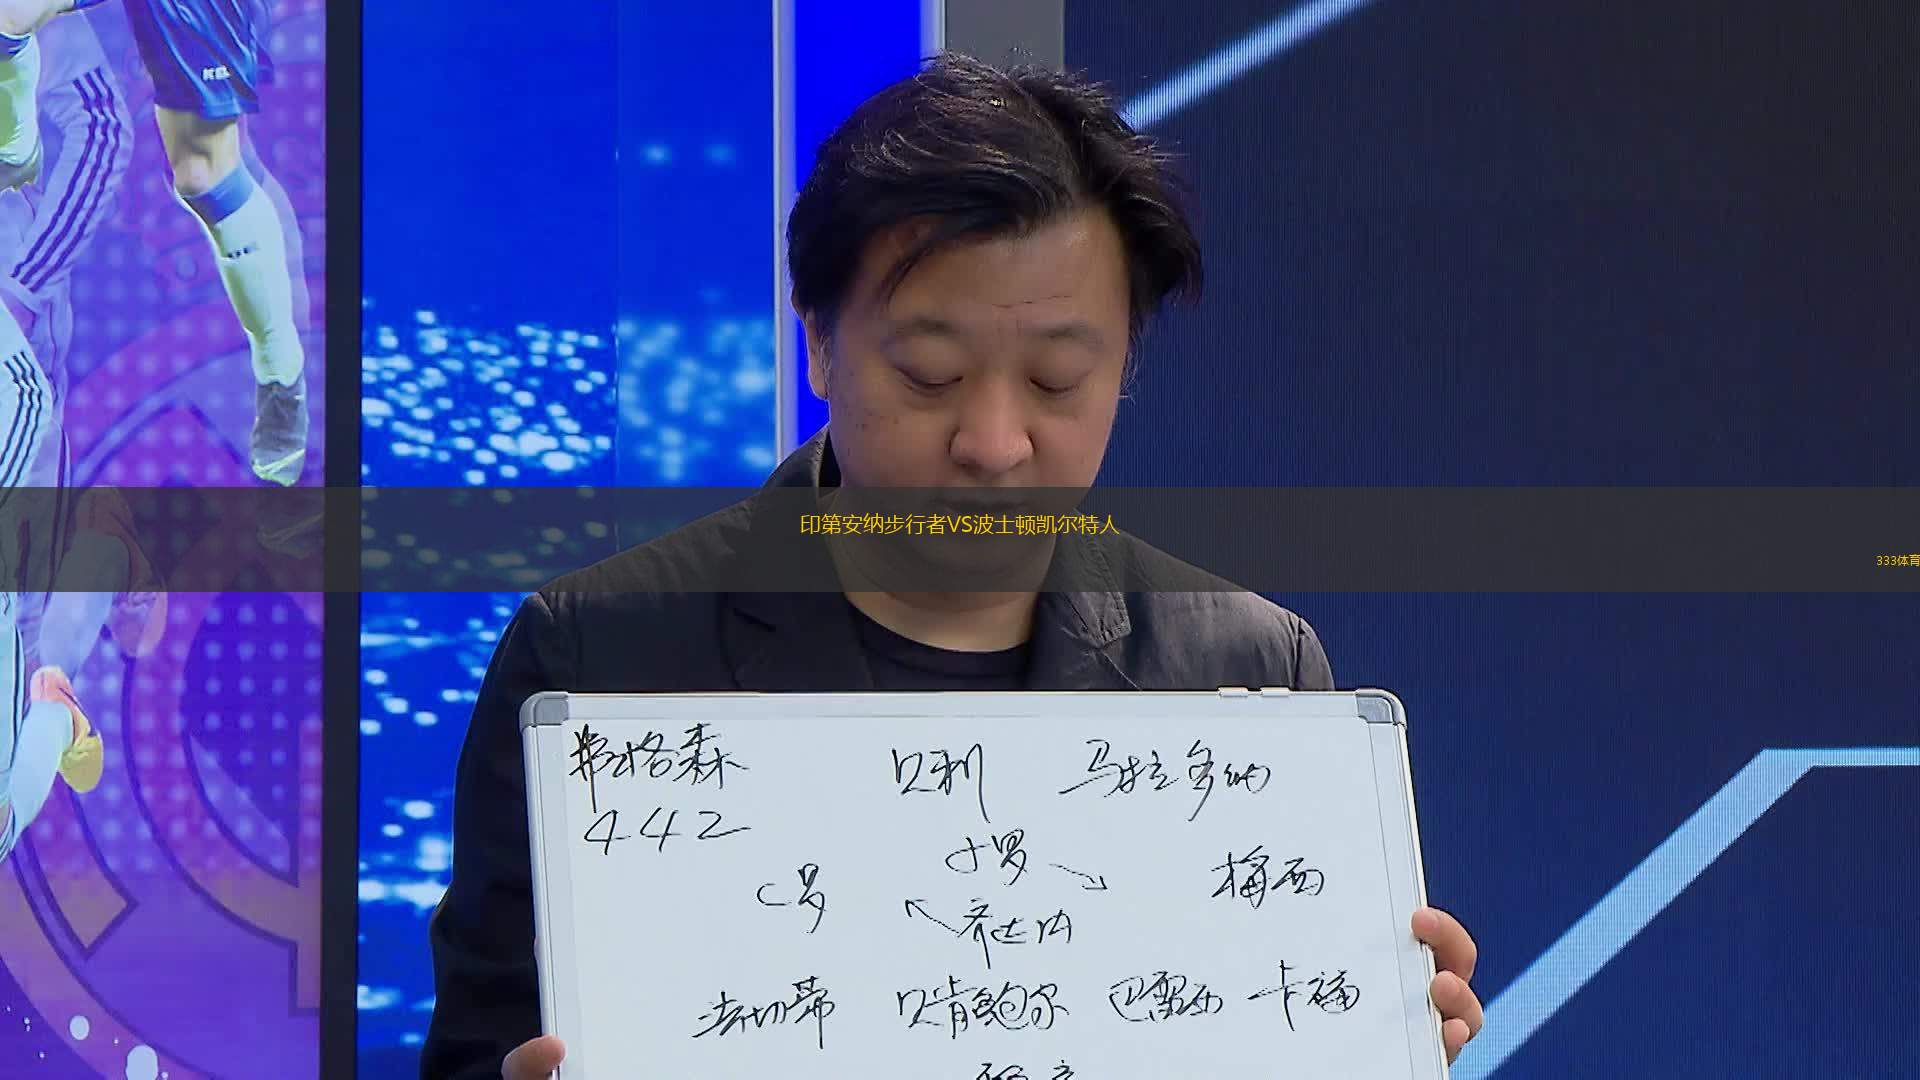 印第安纳步行者VS波士顿凯尔特人
333体育
弗格森 贝利 马拉多纳
442
小罗
C罗 梅西
齐达内
法切蒂 贝肯鲍尔 巴雷西 卡福